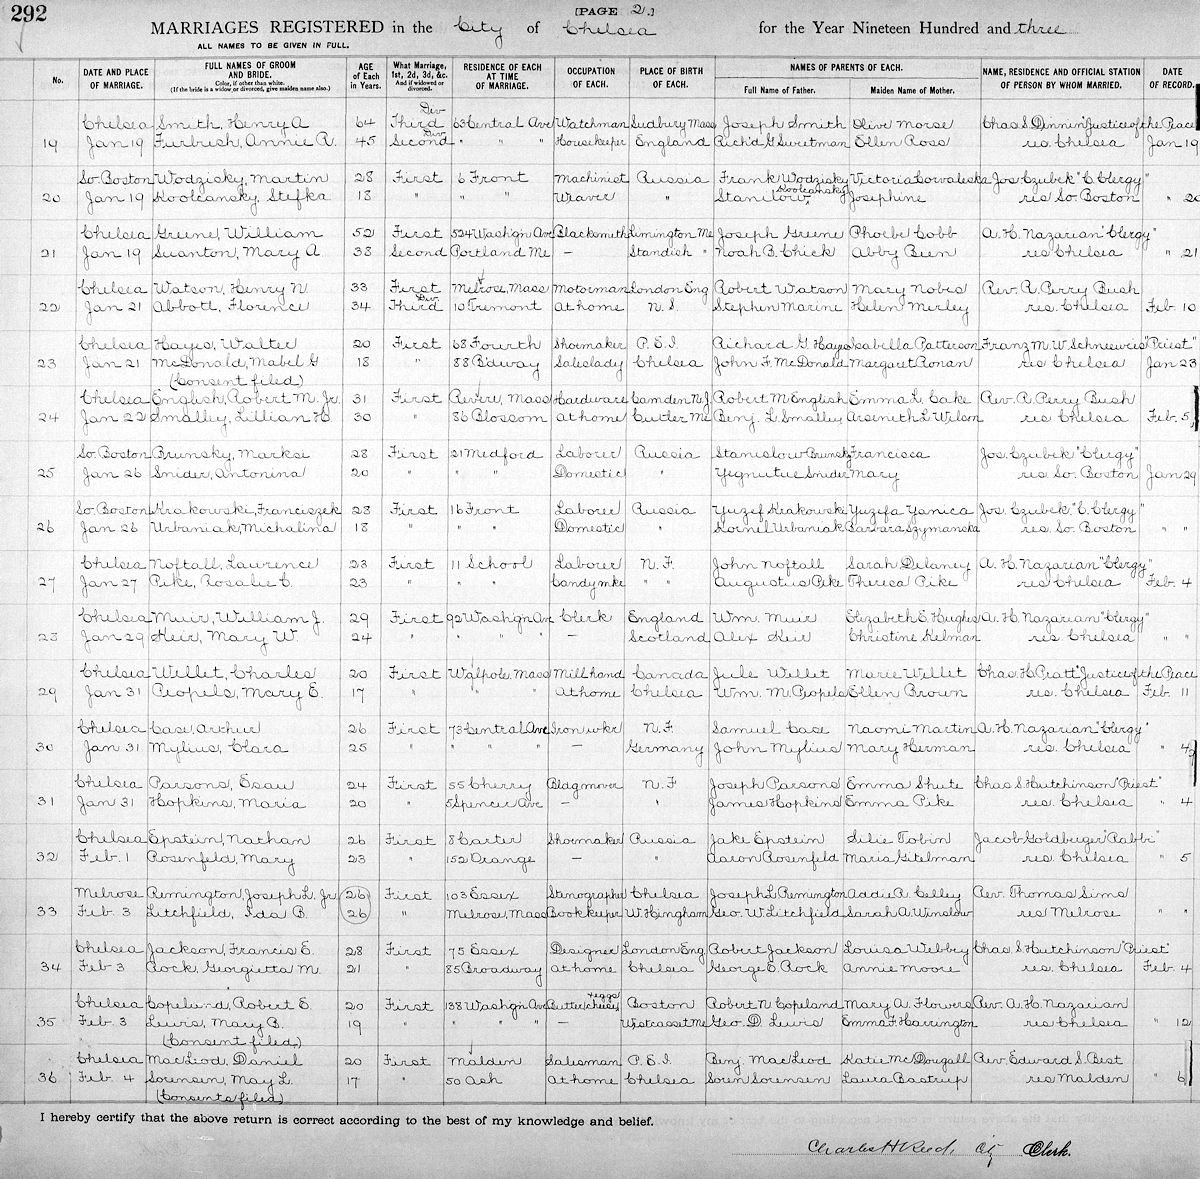 292
[PAGE 2.]
MARRIAGES REGISTERED in the City of Chelsea for the Year Nineteen Hundred and three
ALL NAMES TO BE GIVEN IN FULL.
No. DATE AND PLACE OF MARRIAGE. FULL NAMES OF GROOM AND BRIDE. Color, if other than white. (If the bride is a widow or divorced, give maiden name also.) AGE of Each in Years. What Marriage, 1st, 2d, 3d, &c. And if widowed or divorced. RESIDENCE OF EACH AT TIME OF MARRIAGE. OCCUPATION OF EACH. PLACE OF BIRTH OF EACH. NAMES OF PARENTS OF EACH. Full Name of Father. Maiden Name of Mother. NAME, RESIDENCE AND OFFICIAL STATION OF PERSON BY WHOM MARRIED. DATE OF RECORD.
Div
Chelsea Smith, Henry A 64 Third 63 Central Ave Watchman Sudbury Mass Joseph Smith Olive Morse Chas S. Dinnin "Justice of the Peace
Div
19 Jan 19 Furbush, Annie R. 45 Second " " " Housekeeper England Rich'd G Sweetman Ellen Ross res Chelsea Jan 19
So. Boston Wodzisky, Martin 28 First 6 Front Machinist Russia Frank Wodzisky Victoria Jos. Czubek "C. Clergy"
Koolcansky
20 Jan 19 Koolcansky, Stefka 18 " " " Weaver " Stanilow Josephine res So. Boston " 20
Chelsea Greene, William 52 First 524 Washgn Ave Blacksmith Limington Me Joseph Greene Phoebe Cobb A. H. Nazarian "Clergy"
21 Jan 19 Swanton, Mary A. 38 Second Portland Me — Standish " Noah B. Chick Abby Been res Chelsea " 21
Chelsea Watson, Henry N 33 First Melrose, Mass Motorman London Eng Robert Watson Mary Nobis Rev. R. Perry Bush
Div
22 Jan 21 Abbott, Florence 34 Third 10 Tremont At home N. S. Stephen Marine Helen Merley res. Chelsea Feb. 10
Chelsea Hayes, Walter 20 First 68 Fourth Shoemaker P. E. I. Richard G. Hayes Isabella Patterson Franz M. W. Schneeweis "Priest"
23 Jan 21 McDonald, Mabel G 18 " 88 B'dway Saleslady Chelsea John F. McDonald Margaret Ronan res Chelsea Jan 23
(Consent filed)
Chelsea English, Robert M. Jr. 31 First Revere, Mass Hardware Camden N.J. Robert M English Emma L. Cake Rev. R. Perry Bush
24 Jan 22 Smalley, Lillian H. 30 " 86 Blossom At home Cutler Me Benj. L. Smalley Arseneth L. Wilson res Chelsea Feb. 5
So. Boston Brunsky, Marksi 28 First 21 Medford Laborer Russia Stanislow Brunsky Francisca Jos. Czubek "Clergy"
25 Jan 26 Snider, Antonina 20 " " " Domestic " Snider Mary res So. Boston Jan 29
So. Boston Krakowski, Franciszek 28 First 16 Front Laborer Russia Yuzef Krakowski Yuzefa Yanica Jos. Czubek "C. Clergy"
26 Jan 26 Urbaniak, Michalina 18 " " " Domestic " Kornel Urbaniak Barbara Szymanska res. So. Boston " "
Chelsea Noftall, Lawrence 23 First 11 School Laborer N. F. John Noftall Sarah Delaney A. H. Nazarian "Clergy"
27 Jan 27 Pike, Rosalie C. 23 " " " Candy mkr " " Augustus Pike Theresa Pike res Chelsea Feb. 4
Chelsea Muir, William J. 29 First 92 Washgn Ave Clerk England Wm. Muir Elizabeth E Hughes A. H. Nazarian "Clergy"
28 Jan 29 Keir, Mary W. 24 " " " " — Scotland Alex Keir Christine Kelman res. Chelsea " "
Chelsea Wellet, Charles 20 First Walpole, Mass Mill hand Canada Jule Wellet Marie Wellet Chas. H. Pratt "Justice of the Peace
29 Jan 31 Peopels, Mary E. 17 " " " At home Chelsea Wm. M. Peopels Ellen Brown res. Chelsea Feb. 11
Chelsea Case, Arthur 26 First 73 Central Ave Iron wkr N. F. Samuel Case Naomi Martin A. H. Nazarian "Clergy"
30 Jan 31 Mylius, Clara 25 " " " " — Germany John Mylius Mary Herman res. Chelsea " 4
Chelsea Parsons, Esau 24 First 55 Cherry Bldg mover N. F Joseph Parsons Emma Shute Chas S Hutchinson "Priest"
31 Jan 31 Hopkins, Maria 20 " 5 Spencer Ave — " James Hopkins Emma Pike res. Chelsea " 4
Chelsea Epstein, Nathan 26 First 8 Carter Shoemaker Russia Jake Epstein Silie Tobin Jacob Goldberger "Rabbi"
32 Feb. 1 Rosenfeld, Mary 23 " 152 Orange — " Aaron Rosenfeld Maria Gitelman res Chelsea " 5
Melrose Remington, Joseph L. Jr. 26 First 103 Essex Stenographer Chelsea Joseph L. Remington Addie R. Celley Rev. Thomas Sims
33 Feb. 3 Litchfield, Ida B. 26 " Melrose, Mass Book keeper W. Hingham Geo. W. Litchfield Sarah A. Winslow res Melrose " "
Chelsea Jackson, Francis E. 28 First 75 Essex Designer London Eng. Robert Jackson Louisa Webbey Chas. S. Hutchinson "Priest"
34 Feb 3 Rock, Georgietta M. 21 " 85 Broadway At home Chelsea George E. Rock Annie Moore res. Chelsea Feb. 4
+ eggs
Chelsea Copeland, Robert E. 20 First 138 Washg'n Ave Butter cheese Boston Robert N Copeland Mary A. Flowers Rev. A. H. Nazarian
35 Feb. 3 Lewis, Mary B. 19 " " " " — Westcasset Me Geo. D. Lewis Emma F. Harrington res Chelsea " 12
(Consent filed)
Chelsea MacLeod, Daniel 20 First Malden Salesman P. E. I. Benj. MacLeod Katie McDougall Rev. Edward S. Best
36 Feb. 4 Sorensen, May L. 17 " 50 Ash At home Chelsea Soren Sorensen Laura Bastrup res Malden " 6
(Consents filed)
I hereby certify that the above return is correct according to the best of my knowledge and belief.
Charles H Reed, City Clerk.